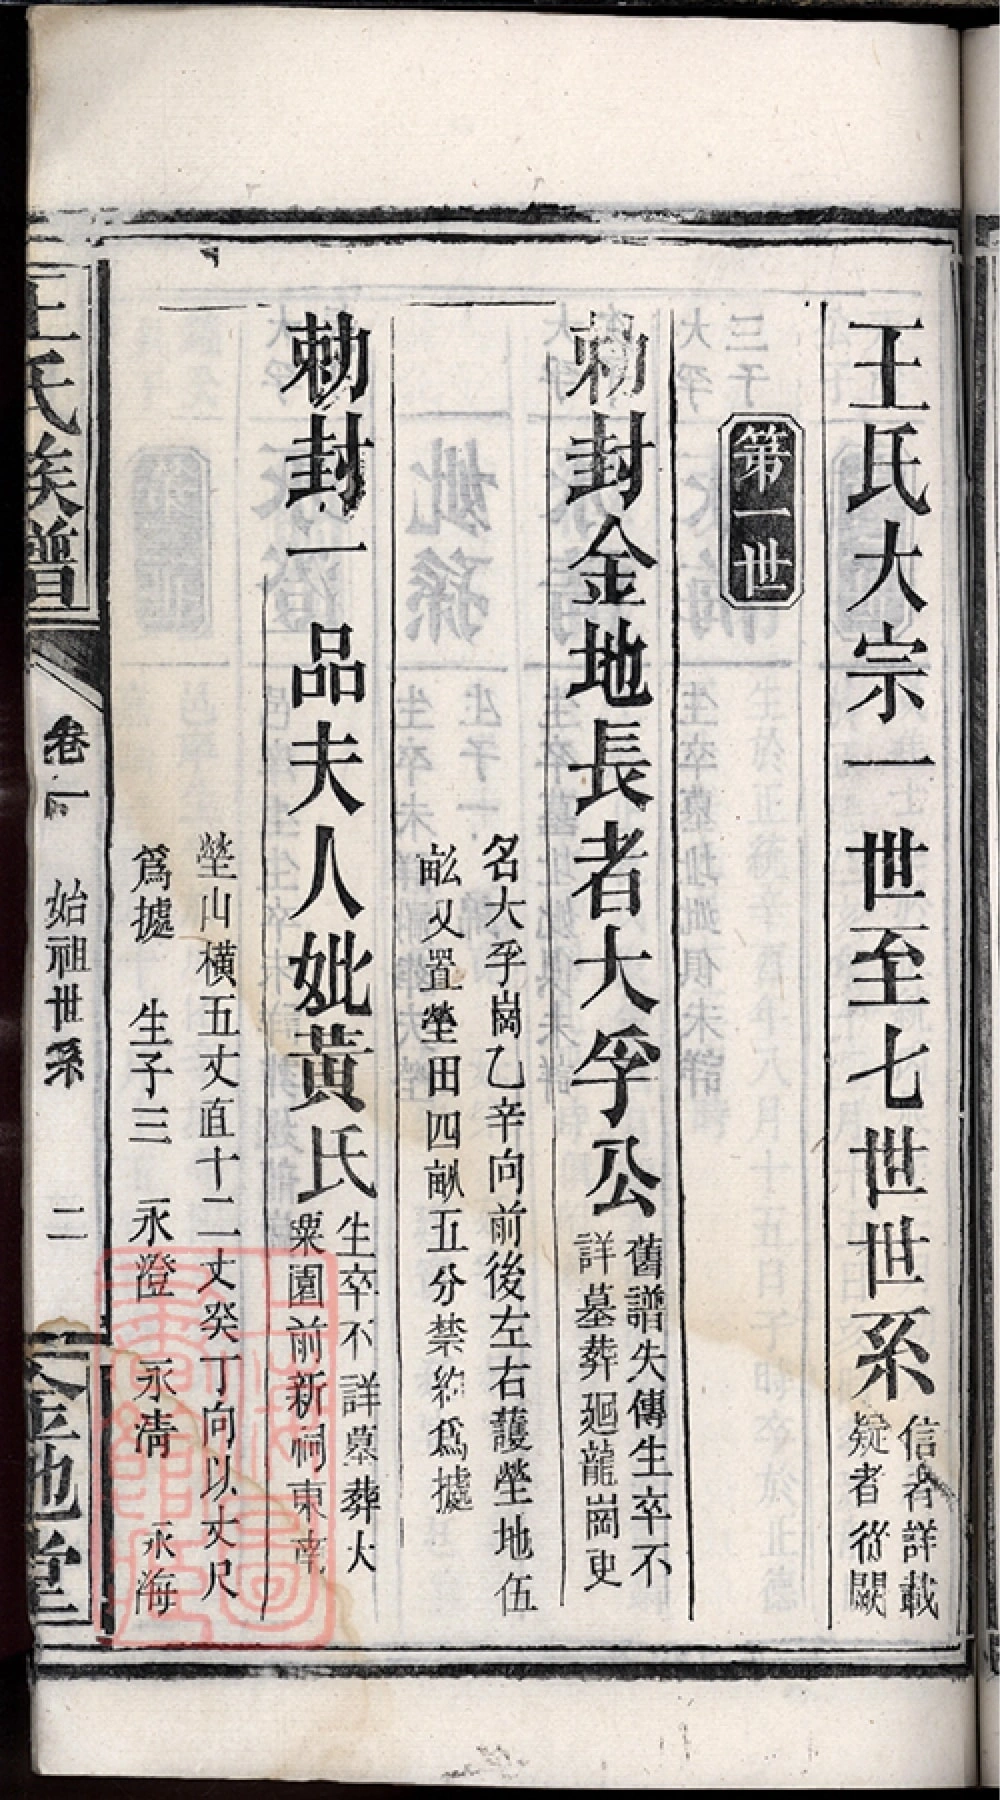 王氏大宗一世至七世世系
信者詳載
疑者從闕
第一世
勅封金地長者大孚公
舊譜失傳生卒不
詳墓葬廻龍崗更
名大孚崗乙辛向前後左右護塋地伍
畝又置塋田四畝五分禁約爲據
勅封一品夫人妣黃氏
生卒不詳墓葬大
粟園前新祠東南
塋山橫五丈直十二丈癸丁向以丈尺
爲據 生子三 永澄 永淸 永海
王氏族譜
卷一 始祖世系 二
金地堂